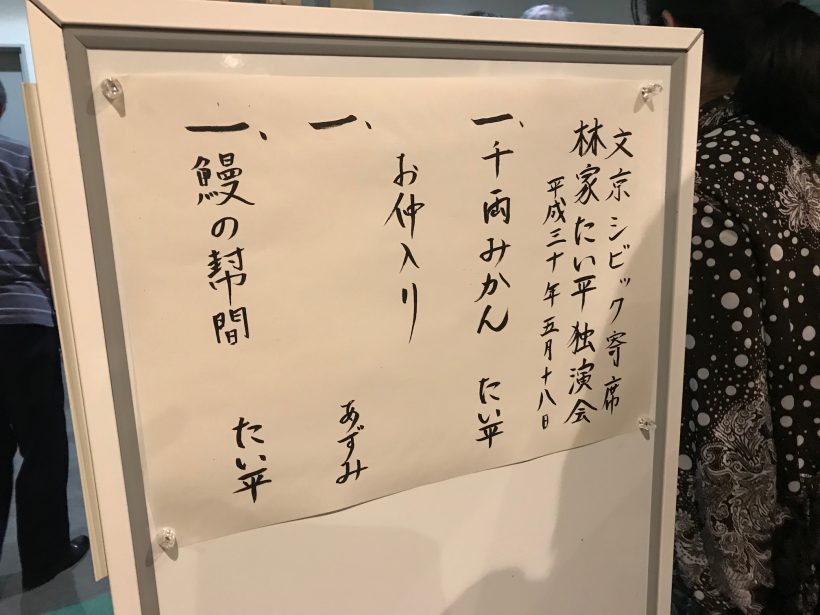 文京シビック寄席
林家たい平独演会
平成三十年五月十八日
一、千両みかん たい平
お仲入り
一、 あずみ
一、鰻の幇間 たい平